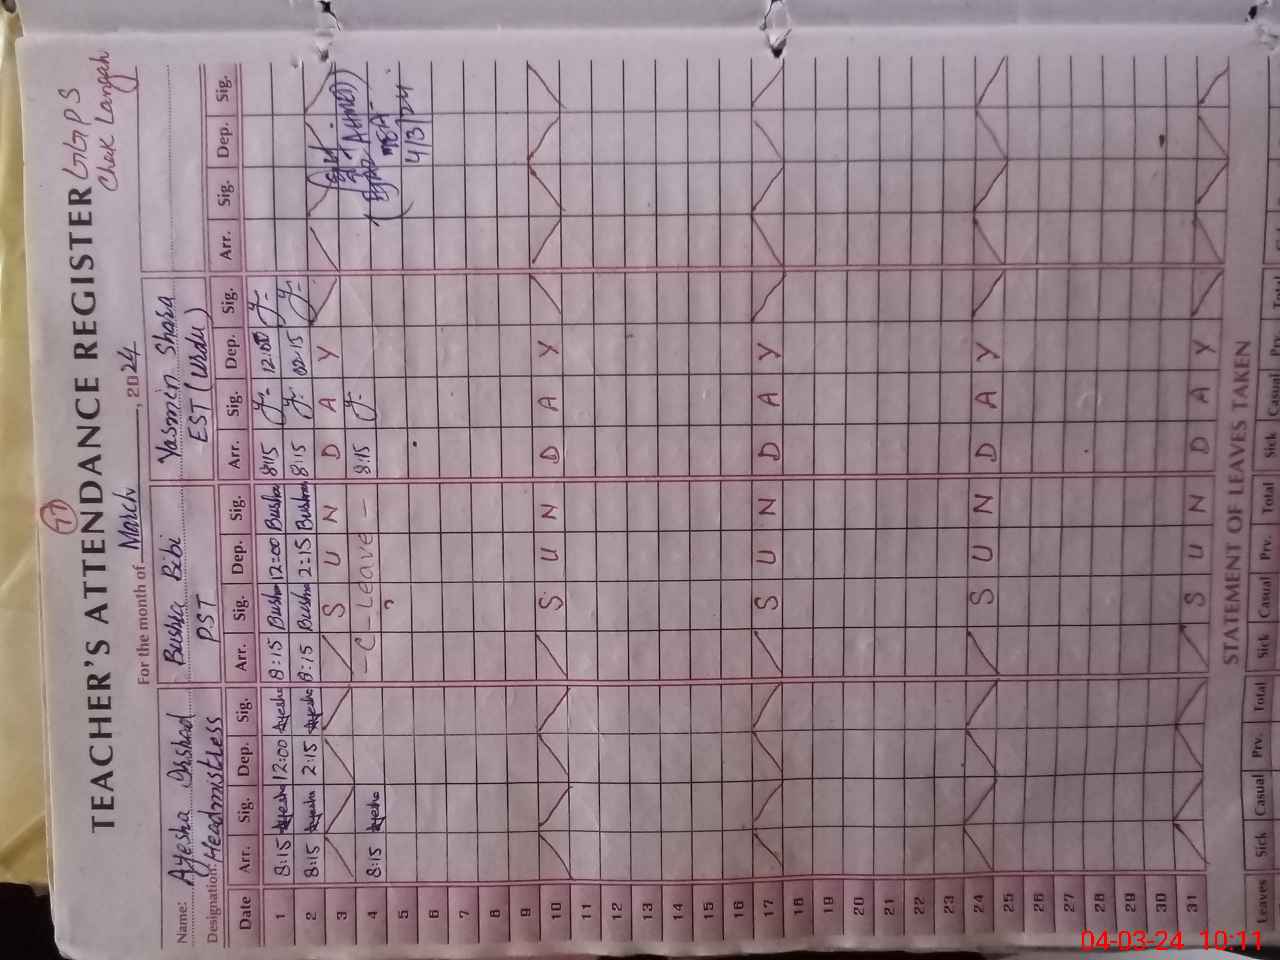 TEACHER'S ATTENDANCE REGISTER GGPS
Chak Langah
For the month of March, 2024
Name: Ayesha Arshad Bushra Bibi Yasmin Shara
Designation: Headmistress PST EST (Urdu)
Date Arr. Sig. Dep. Sig. Arr. Sig. Dep. Sig. Arr. Sig. Dep. Sig. Arr. Sig. Dep. Sig.
1 8:15 Ayesha 12:00 Ayesha 8:15 Bushra 12:00 Bushra 8:15 12:00
2 8:15 Ayesha 2:15 Ayesha 8:15 Bushra 2:15 Bushra 8:15 02:15
3 S U N D A Y
4 8:15 Ayesha - C - Leave - 8:15
MEA
4/3/24
5
6
7
8
9
10 S U N D A Y
11
12
13
14
15
16
17 S U N D A Y
18
19
20
21
22
23
24 S U N D A Y
25
26
27
28
29
30
31 S U N D A Y
STATEMENT OF LEAVES TAKEN
Leaves Sick Casual Prv. Total Sick Casual Prv. Total Sick Casual Prv. Total
04-03-24 10:11